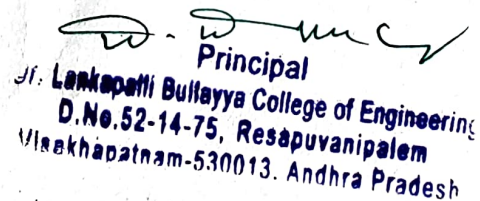 Principal
Lankapalli Bullayya College of Engineering
D.No.52-14-75, Resapuvanipalem
Visakhapatnam-530013. Andhra Pradesh